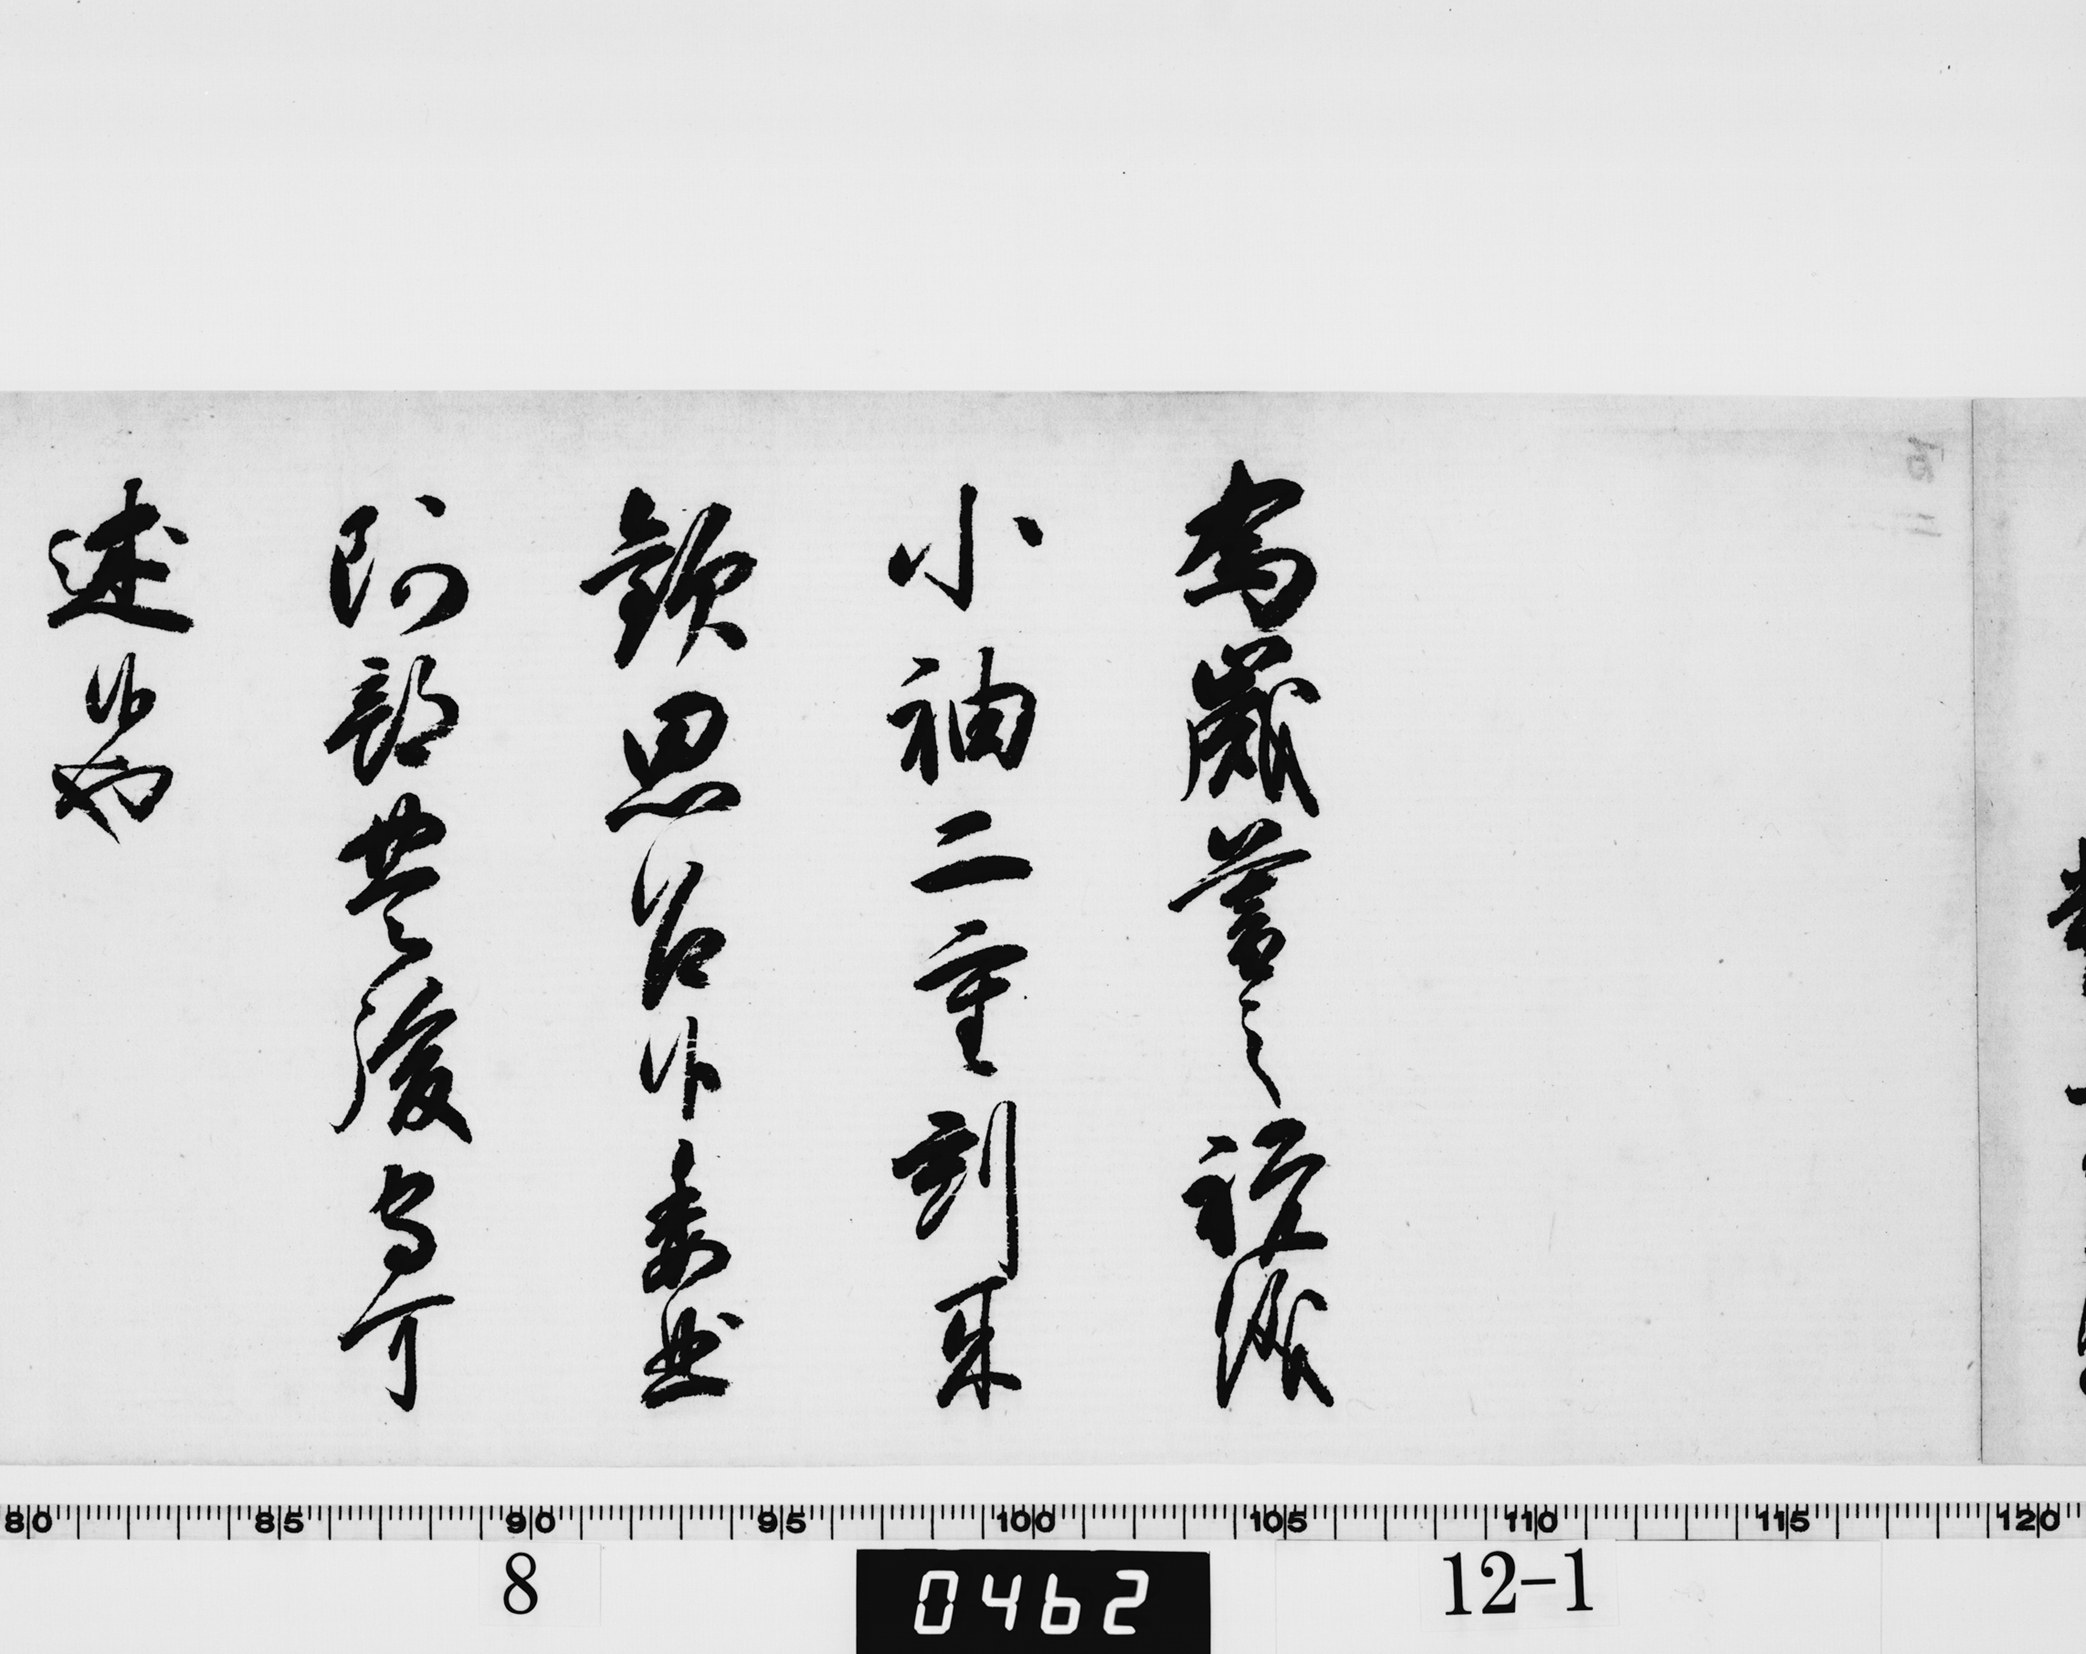 為歳暮之祝儀
小袖二重到来
歓思召候委曲
阿部豊後守可
述候也
80 85 90 95 100 105 110 115 120
8 0462 12-1